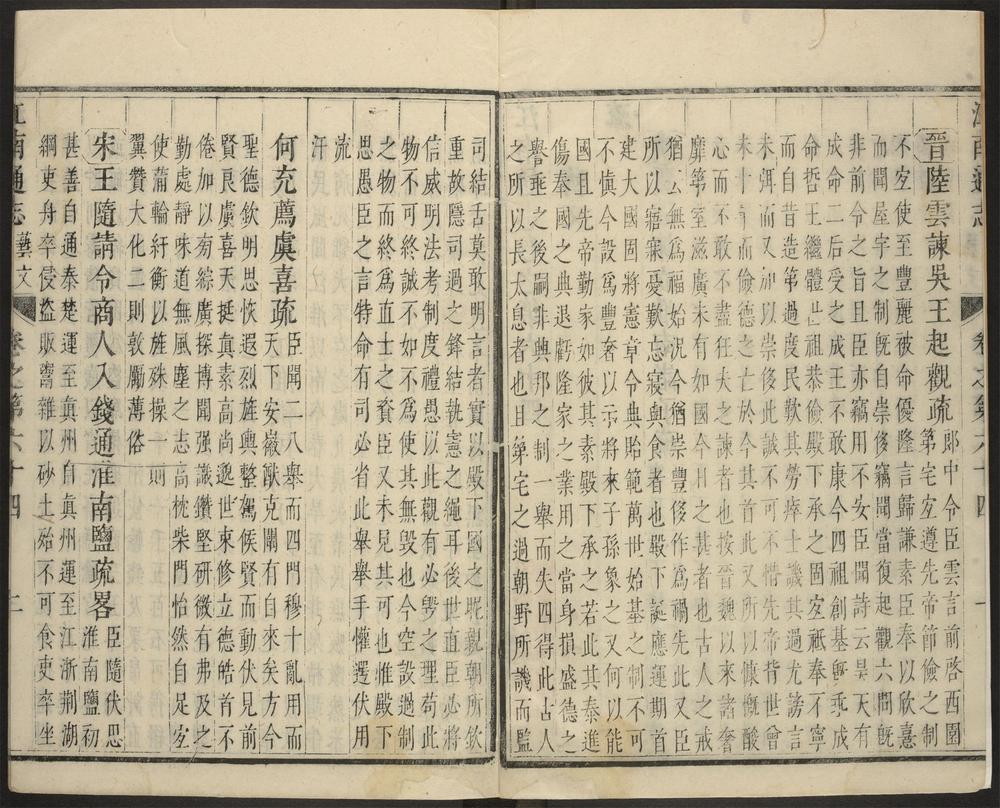 江南通志
卷之第六十四
晉陸雲諫吳王起觀疏
郎中令臣雲言前啓西園
第宅宜遵先帝節儉之制
不宜使至豐麗被命優隆言歸謙素臣奉以欣憙
而聞屋宇之制旣自崇侈竊聞當復起觀六間旣
非前令之旨且臣亦竊用不安臣聞詩云昊天有
成命二后受之成王不敢康今四祖創基旣乖成
命哲王繼體世祖恭儉殿下承之固宜祇奉不寧
而自昔造第過度民歎其勞瘁士譏其過尤謗言
未弭而又加以崇侈此誠不可不惜先帝背世曾
未十年而儉德之亡於今其首此又所以慷慨酸
心而不敢不盡狂夫之諫者也按晉魏以來諸奢
靡第室滋廣未有如國今日之甚者也古人之戒
猶云無爲福始況今猶崇豐侈作爲禍先此又臣
所以寤寐憂歎忘寢與食者也殿下誕應運期首
建大國將憲章令典貽範萬世始基之制不可
不慎今設爲豐奢以示將來子孫象之又何以能
國且先帝勤家如彼其素殿下承之若此其泰進
傷奉國之典退虧隆家之業用之當身損盛德之
譽乖之後嗣非興邦之制一舉而失四得此古人
之所以長太息者也且第宅之過朝野所譏而監
司結舌莫敢明言者實以殿下國之昵親朝所欽
重故隱司過之鋒結執憲之繩耳後世直臣必將
信威明法考制度禮愚以此觀有必毁之理苟此
物不可終誠不如不爲使其無毁也今空設過制
之物而終爲直士之資臣又未見其可也惟殿下
思愚臣之言特命有司必省此舉舉手懼遑伏用
流
汗
何充薦虞喜疏
臣聞二八舉而四門穆十亂用而
天下安徽猷克闡有自來矣方今
聖德欽明思恢遐烈旌輿整駕俟賢而動伏見前
賢良虞喜天挺眞素高尚邈世束修立德皓首不
倦加以旁綜廣探博聞强識鑽堅研微有弗及之
勤處靜味道無風塵之志高枕柴門怡然自足宜
使蒲輪紆衡以旌殊操一則
翼贊大化二則敦勵薄俗
宋王隨請令商人入錢通淮南鹽疏畧
臣隨伏思
淮南鹽初
甚善自通泰楚運至眞州自眞州運至江浙荆湖
綱吏舟卒侵盜販鬻雜以砂土殆不可食吏卒坐
江南通志
藝文
卷之第六十四